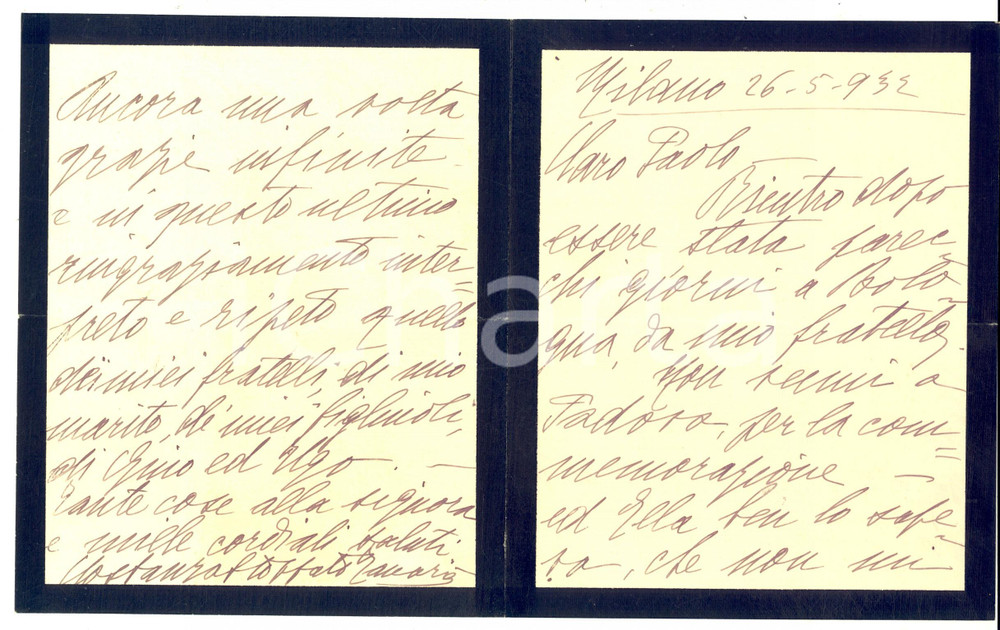 Milano 26-5-932
Caro Paolo
Rientro dopo
essere stata parec=
chi giorni a Bolo=
gna, da mio fratello.
Non venni a
Padova, per la com=
memorazione —
ed Ella ben lo sape=
va, che non mi
Ancora una volta
grazie infinite -
e in questo ultimo
ringraziamento inter=
preto e ripeto quello
dei miei fratelli, di mio
marito, de' miei figliuoli,
di Gino ed Ugo. —
Tante cose alla signora
e mille cordiali saluti
Costanza